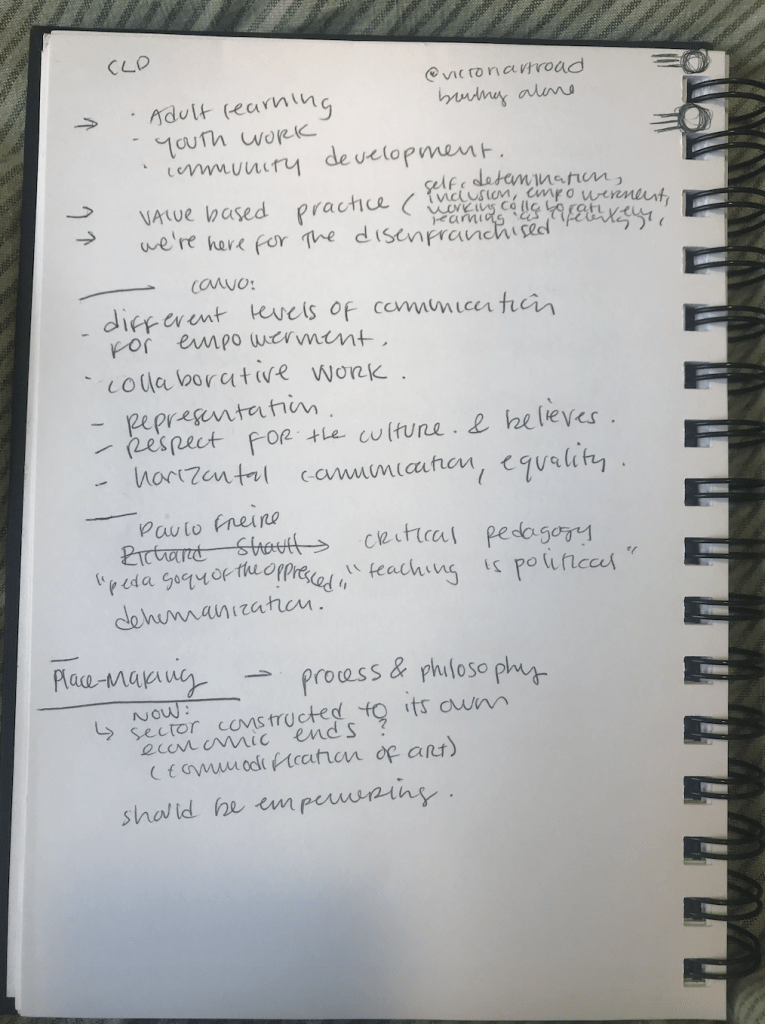 CLD
@victoriartroad
bowling alone
→ · Adult learning
- youth work
· community development.
→ value based practice (self-determination,
inclusion, empowerment,
working collaboratively,
learning as lifelong),
→ we're here for the disenfranchised
- different levels of communication
for empowerment.
· collaborative work.
- representation.
- respect for the culture. & believes.
- horizontal communication, equality.
Paulo Freire
Richard Shaull → critical pedagogy
"pedagogy of the oppressed," "teaching is political"
dehumanization.
Place-making → process & philosophy
NOW:
↳ sector constructed to its own
economic ends?
(commodification of art)
should be empowering.